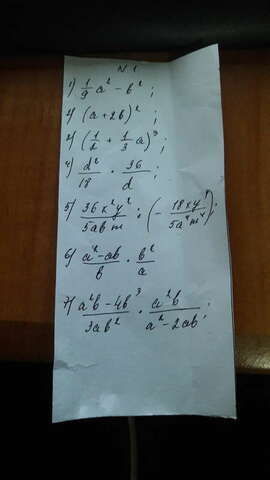 N 1
1) 1/9 a² - b² ;
2) (a + 2b)² ;
2) (1/2 + 1/3 a)³ ;
4) d²/18 · 36/d ;
5) 36x²y²/5abm : (- 18xy/5a⁴m⁴) ;
6) a² - ab/b · b²/a
7) a²b - 4b³/3ab² · a²b/a² - 2ab ;